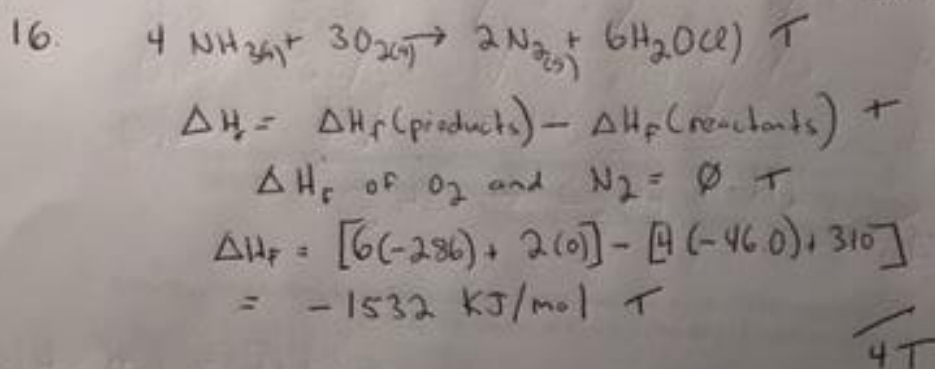 16. 4 NH₃(g) + 3O₂(g) → 2N₂(g) + 6H₂O(l) T
ΔHᵣ = ΔHf (products) – ΔHf (reactants) T
ΔHf of O₂ and N₂ = Ø T
ΔHF = [6(-286) + 2(0)] - [4(-46.0) + 3(0)]
= -1532 KJ/mol T
4T